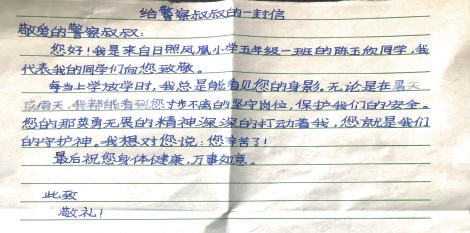 给警察叔叔的一封信
敬爱的警察叔叔:
您好!我是来自日照凤凰小学五年级一班的陈玉欣同学,我
代表我的同学们向您致敬。
每当上学放学时,我总是能看见您的身影。无论是在暑天
或雨天,我都能看到您寸步不离的坚守岗位,保护我们的安全。
您的那英勇无畏的精神深深的打动着我,您就是我们
的守护神。我想对您说:您辛苦了!
最后祝您身体健康,万事如意。
此致
敬礼!